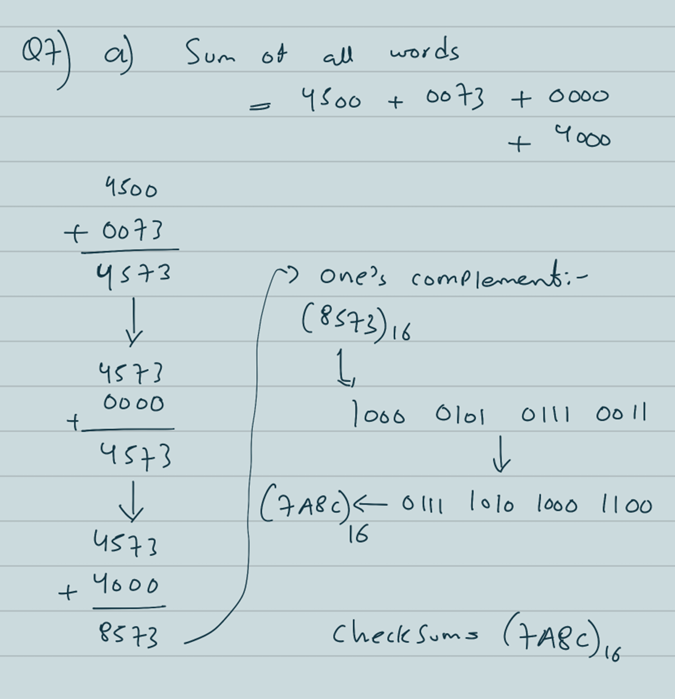 Q7) a) Sum of all words
= 4500 + 0073 + 0000
+ 4000
4500
+ 0073
4573
↓
4573
+ 0000
4573
↓
4573
+ 4000
8573
→ one's complement:-
(8573)16
↳
1000 0101 0111 0011
↓
(7A8C)16 ← 0111 1010 1000 1100
Checksum = (7A8C)16